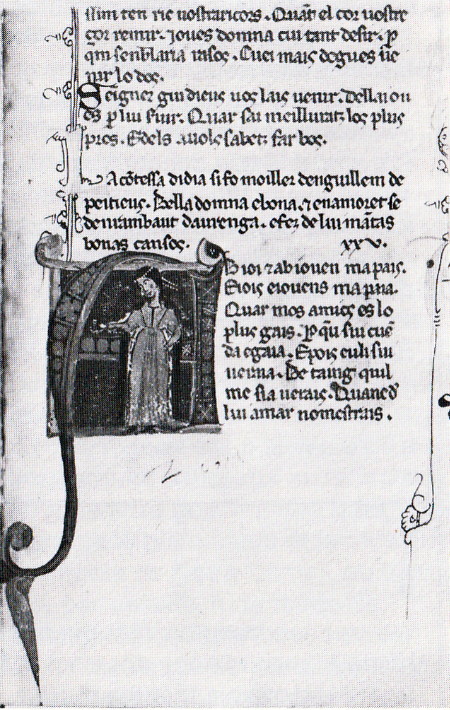 ten ric Quar el cor uostre
cor remir . ioues domna cui tant desir . p
qm senblaria . Cuei mais dogues ue
nir lo doç .
Seigner gui dieus uoç lais uenir .
es p lui . Quar sai meillurat loç pluç
pros . Edels auolç sabet far boç .
Na cõtessa didia si fo moiller denguillem de
peitieus . Bella domna ebona . & enamoret se
den rambaut daurenga . efez de lui mãtas
bonas cansos . XXV .
A Bioi & ab iouen ma pais .
Eiois eiouens ma paia .
Quar mos amics es lo
plus gais . p
da egaia . E pois euli siu
ueraia . Be taing quil
me sia uerais .
lui amar nomestrais .